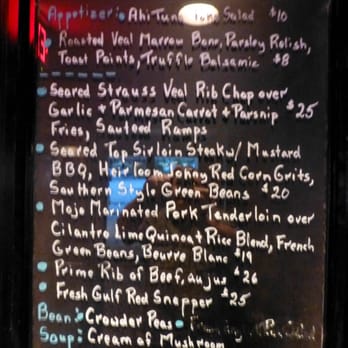 Appetizer: Ahi Tuna Salad $10
Roasted Veal Marrow Bone, Parsley Relish,
Toast Points, Truffle Balsamic $8
Seared Strauss Veal Rib Chop over
Garlic + Parmesan Carrot + Parsnip $25
Fries, Sauteed Ramps
Seared Top Sirloin Steak w/ Mustard
BBQ, Heirloom Johny Red Corn Grits,
Southern Style Green Beans $20
Mojo Marinated Pork Tenderloin over
Cilantro Lime Quinoa + Rice Blend, French
Green Beans, Beurre Blanc $19
Prime Rib of Beef, au jus $26
Fresh Gulf Red Snapper $25
Bean: Crowder Peas
Soup: Cream of Mushroom